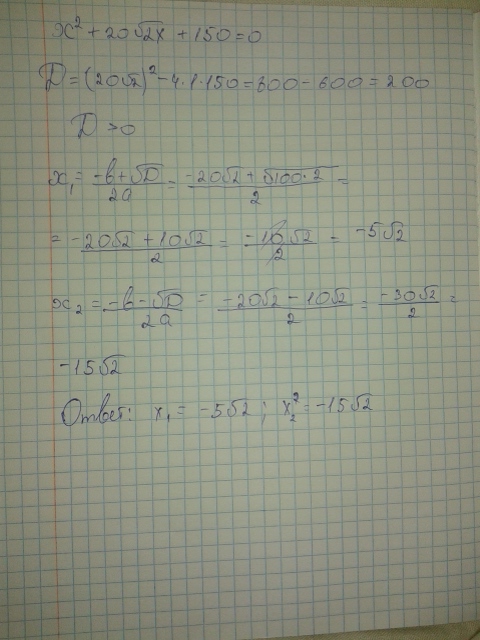 x² + 20√2x + 150 = 0
D = (20√2)² - 4·1·150 = 800 - 600 = 200
D > 0
x₁ = (-b+√D)/2a = (-20√2 + √100·2)/2 =
= (-20√2 + 10√2)/2 = (-10√2)/2 = -5√2
x₂ = (-b-√D)/2a = (-20√2 - 10√2)/2 = (-30√2)/2 =
-15√2
Ответ: x₁ = -5√2; x₂² = -15√2